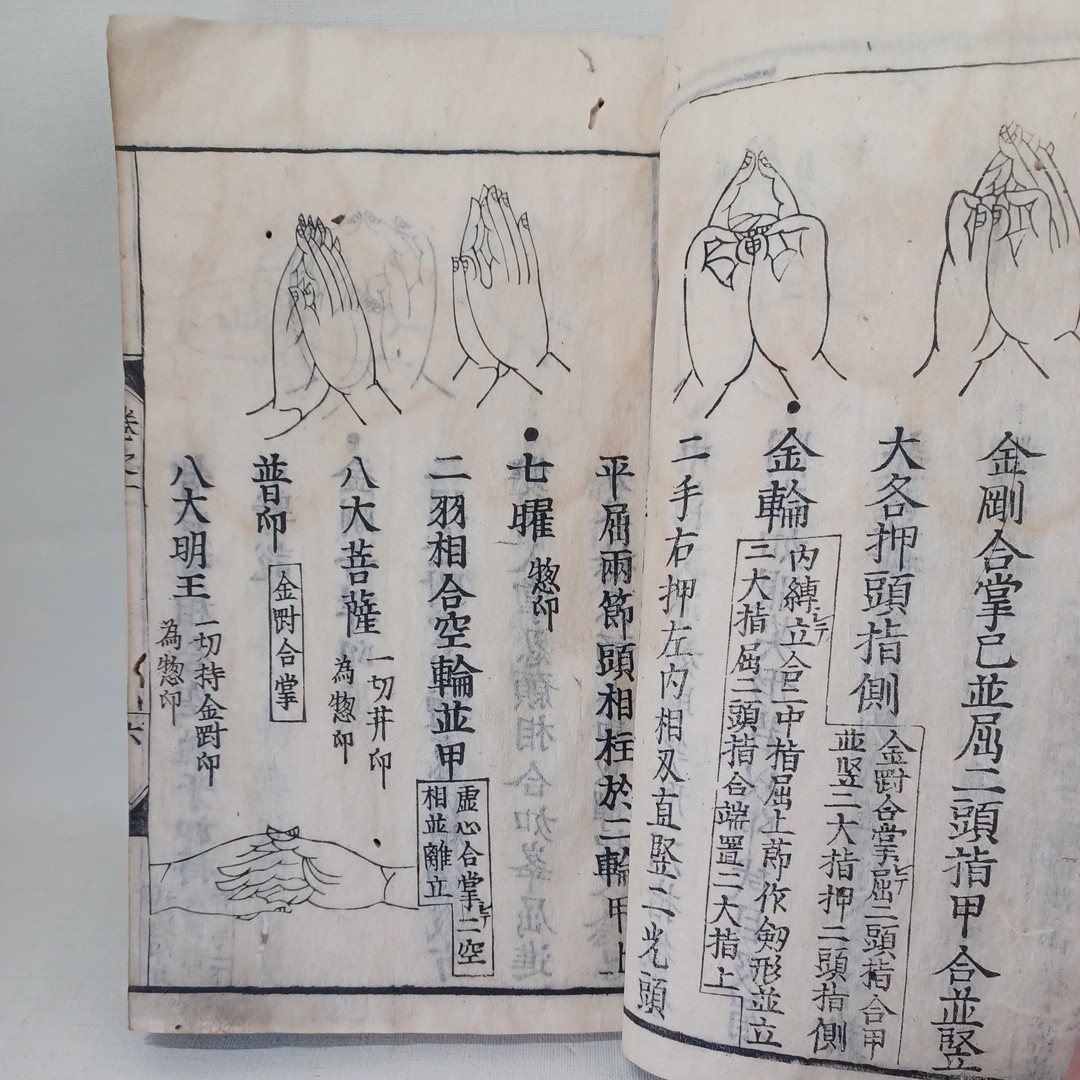 金剛合掌已並屈二頭指甲合並竪
大各押頭指側
金剛合掌屈二頭指合甲
並竪二大指押二頭指側
金輪
内縛立合二中指屈上節作劔形並立
二大指屈二頭指合端置二大指上
二手右押左内相叉直竪二光頭
平屈兩節頭相柱於二輪甲上
七曜惣印
二羽相合空輪並甲
虚心合掌二空
相並離立
八大菩薩
一切井印
為惣印
普印
金剛合掌
八大明王
一切持金剛印
為惣印